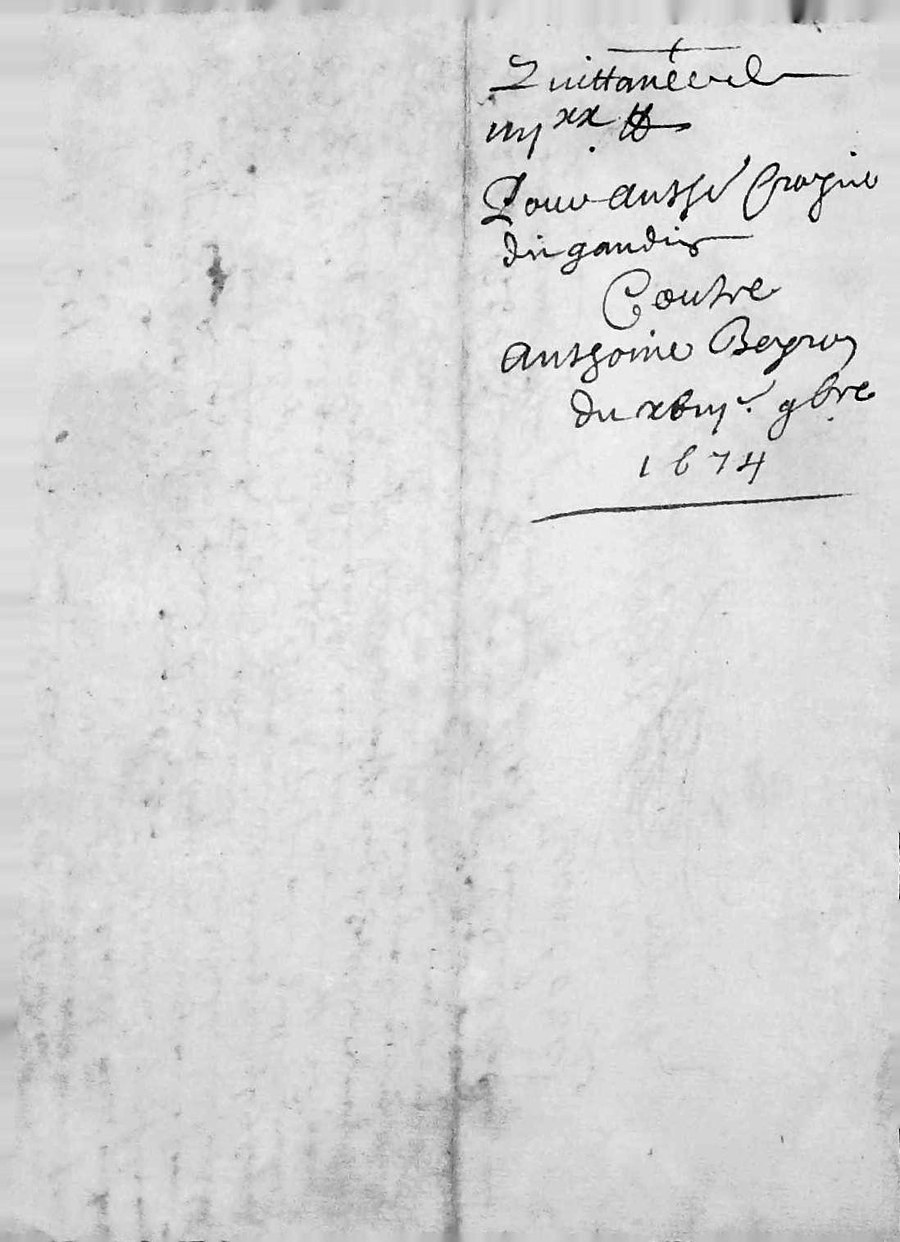 Quittance de
iiij xx ℔
Pour Anthe Crozine
du gaudin
Contre
Anthoine Beyron
du xbiije 9bre
1674